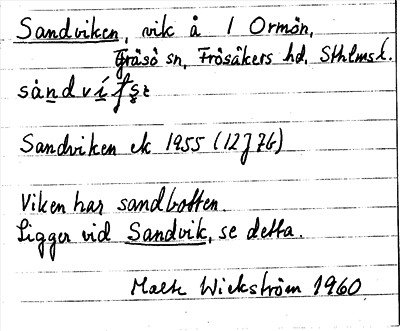 Sandviken, vik å 1 Ormön,
Gräsö sn, Frösåkers hd, Sthlms l.
Sandviken ek 1955 (12J7b)
Viken har sandbotten.
Ligger vid Sandvik, se detta.
Malte Wickström 1960